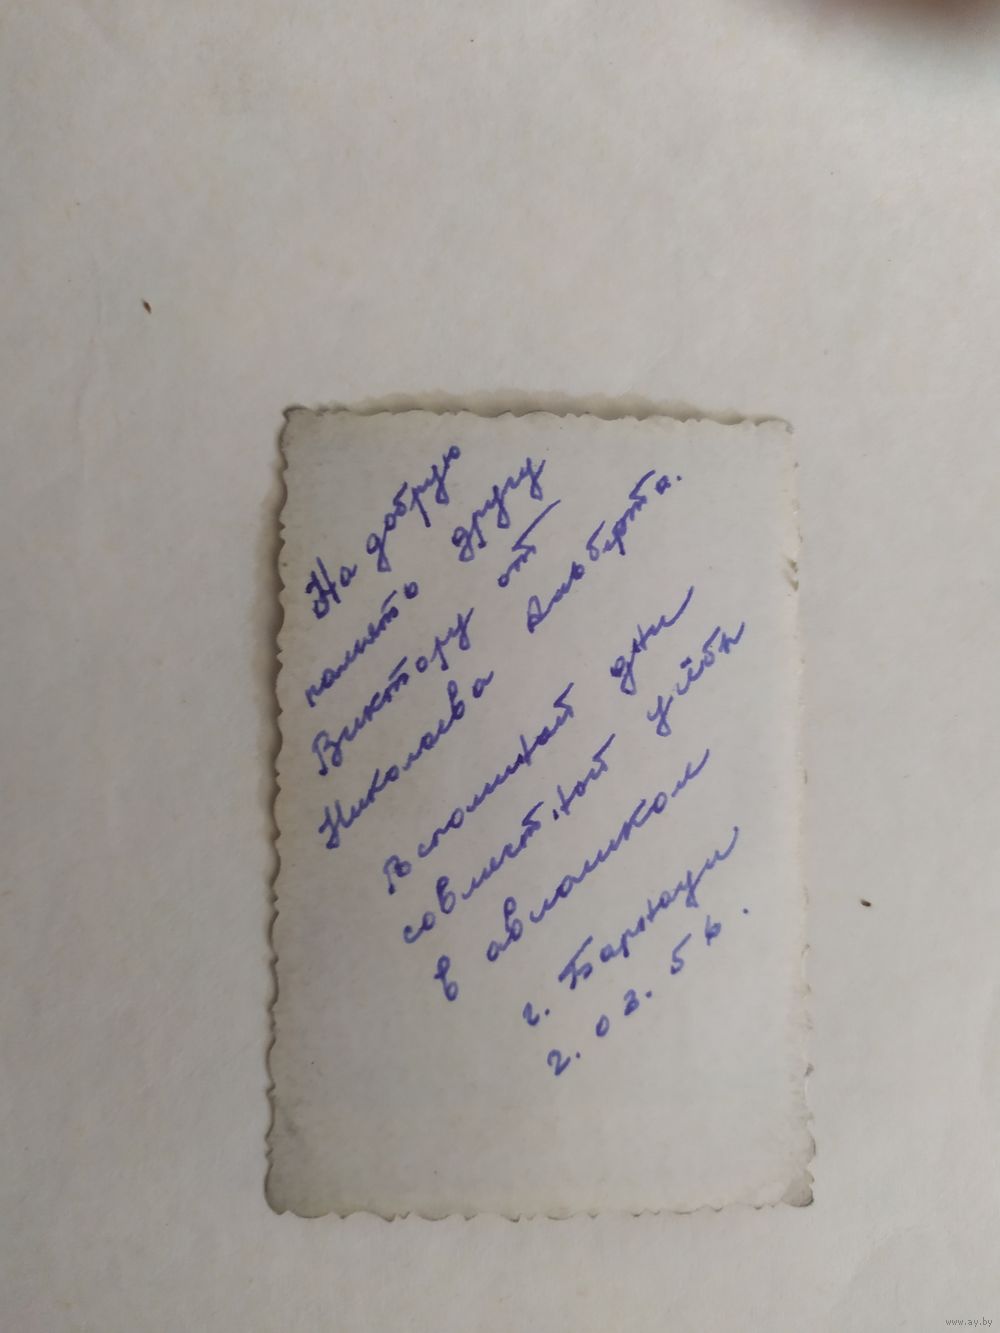 На добрую
память другу
Виктору от
Николаева Альберта.
Вспоминай дни
совместной учёбы
в авиашколе
г. Барнаул
2. 03. 56.
www.ay.by